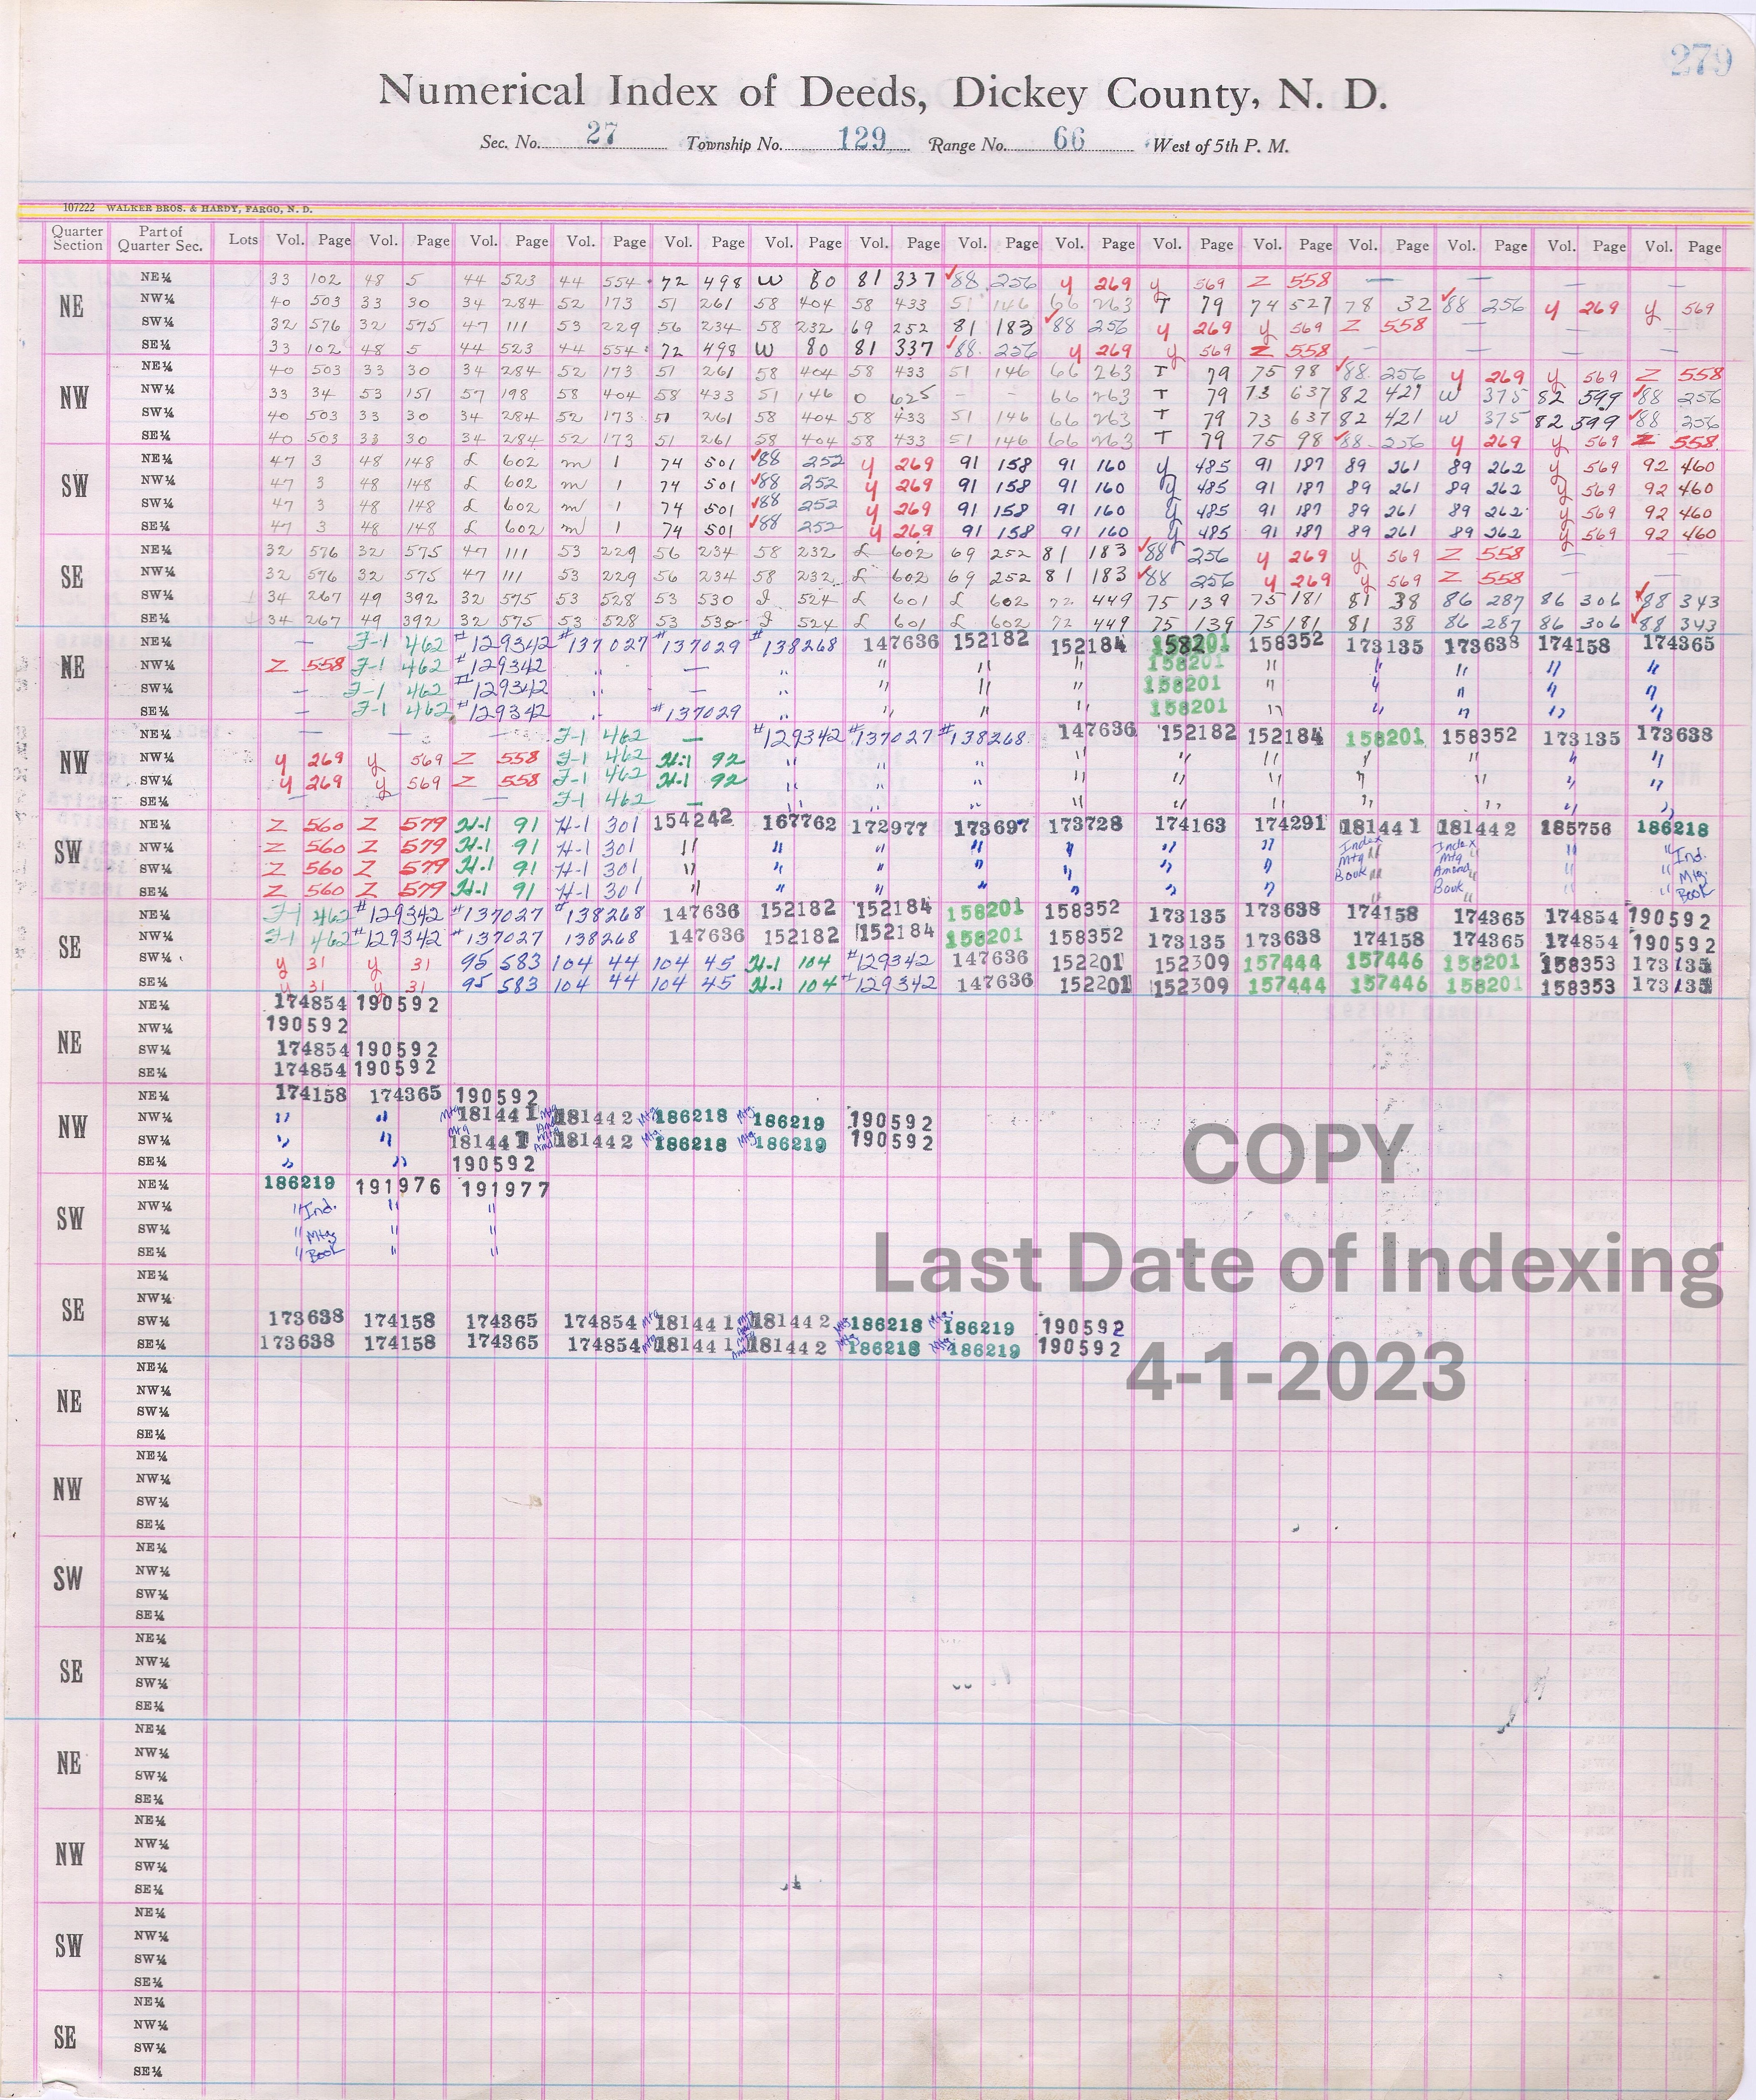 279
Numerical Index of Deeds, Dickey County, N. D.
Sec. No. 27 Township No. 129 Range No. 66 West of 5th P. M.
107222 WALKER BROS. & HARDY, FARGO, N. D.
Quarter Section Part of Quarter Sec. Lots Vol. Page Vol. Page Vol. Page Vol. Page Vol. Page Vol. Page Vol. Page Vol. Page Vol. Page Vol. Page Vol. Page Vol. Page Vol. Page Vol. Page Vol. Page
NE
NE¼ 33 102 48 5 44 523 44 554 72 498 W 80 81 337 ✓88 256 y 269 y 569 Z 558 — — — —
NW¼ 40 503 33 30 34 284 52 173 51 261 58 404 58 433 51 146 66 263 T 79 74 527 78 32 ✓88 256 y 269 y 569
SW¼ 32 576 32 575 47 111 53 229 56 234 58 232 69 252 81 183 ✓88 256 y 269 y 569 Z 558 — — —
SE¼ 33 102 48 5 44 523 44 554 72 498 W 80 81 337 ✓88 256 y 269 y 569 Z 558 — — — —
NW
NE¼ 40 503 33 30 34 284 52 173 51 261 58 404 58 433 51 146 66 263 T 79 75 98 ✓88 256 y 269 y 569 Z 558
NW¼ 33 34 53 151 57 198 58 404 58 433 51 146 O 625 - - 66 263 T 79 73 637 82 421 W 375 82 599 ✓88 256
SW¼ 40 503 33 30 34 284 52 173 51 261 58 404 58 433 51 146 66 263 T 79 73 637 82 421 W 375 82 599 ✓88 256
SE¼ 40 503 33 30 34 284 52 173 51 261 58 404 58 433 51 146 66 263 T 79 75 98 ✓88 256 y 269 y 569 Z 558
SW
NE¼ 47 3 48 148 L 602 m 1 74 501 ✓88 252 y 269 91 158 91 160 y 485 91 187 89 261 89 262 y 569 92 460
NW¼ 47 3 48 148 L 602 m 1 74 501 ✓88 252 y 269 91 158 91 160 y 485 91 187 89 261 89 262 y 569 92 460
SW¼ 47 3 48 148 L 602 m 1 74 501 ✓88 252 y 269 91 158 91 160 y 485 91 187 89 261 89 262 y 569 92 460
SE¼ 47 3 48 148 L 602 m 1 74 501 ✓88 252 y 269 91 158 91 160 y 485 91 187 89 261 89 262 y 569 92 460
SE
NE¼ 32 576 32 575 47 111 53 229 56 234 58 232 L 602 69 252 81 183 ✓88 256 y 269 y 569 Z 558 — —
NW¼ 32 576 32 575 47 111 53 229 56 234 58 232 L 602 69 252 81 183 ✓88 256 y 269 y 569 Z 558 — —
SW¼ 34 267 49 392 32 575 53 528 53 530 J 524 L 601 L 602 72 449 75 139 75 181 81 38 86 287 86 306 ✓88 343
SE¼ 34 267 49 392 32 575 53 528 53 530 J 524 L 601 L 602 72 449 75 139 75 181 81 38 86 287 86 306 ✓88 343
NE
NE¼ — F-1 462 #129342 #137027 #137029 #138268 147636 152182 152184 158201 158352 173135 173638 174158 174365
NW¼ Z 558 F-1 462 #129342 " — " " " " 158201 " " " " "
SW¼ — F-1 462 #129342 " — " " " " 158201 " " " " "
SE¼ — F-1 462 #129342 " #137029 " " " " 158201 " " " " "
NW
NE¼ — — — F-1 462 — #129342 #137027 #138268 147636 152182 152184 158201 158352 173135 173638
NW¼ y 269 y 569 Z 558 F-1 462 H-1 92 " " " " " " " " " "
SW¼ y 269 y 569 Z 558 F-1 462 H-1 92 " " " " " " " " " "
SE¼ — — — F-1 462 — " " " " " " " " " "
SW
NE¼ Z 560 Z 579 H-1 91 H-1 301 154242 167762 172977 173697 173728 174163 174291 181441 181442 185756 186218
NW¼ Z 560 Z 579 H-1 91 H-1 301 " " " " " " " Index " Index " " " Ind.
SW¼ Z 560 Z 579 H-1 91 H-1 301 " " " " " " " Mtg " Mtg Amend " " " Mtg.
SE¼ Z 560 Z 579 H-1 91 H-1 301 " " " " " " " Book " Book " " " Book
SE
NE¼ F-1 462 #129342 #137027 #138268 147636 152182 152184 158201 158352 173135 173638 174158 174365 174854 190592
NW¼ F-1 462 #129342 #137027 138268 147636 152182 152184 158201 158352 173135 173638 174158 174365 174854 190592
SW¼ y 31 y 31 95 583 104 44 104 45 H-1 104 #129342 147636 152201 152309 157444 157446 158201 158353 173135
SE¼ y 31 y 31 95 583 104 44 104 45 H-1 104 #129342 147636 152201 152309 157444 157446 158201 158353 173135
NE
NE¼ 174854 190592
NW¼ 190592
SW¼ 174854 190592
SE¼ 174854 190592
NW
NE¼ 174158 174365 190592
NW¼ " " Mtg 181441 Mtg Amd 181442 Mtg. 186218 Mtg. 186219 190592
SW¼ " " Mtg 181441 Mtg Amd 181442 Mtg. 186218 Mtg. 186219 190592
SE¼ " " 190592
SW
NE¼ 186219 191976 191977
NW¼ " Ind. " "
SW¼ " Mtg " "
SE¼ " Book " "
SE
NE¼
NW¼
SW¼ 173638 174158 174365 174854 Mtg 181441 181442 Mtg 186218 Mtg. 186219 190592
SE¼ 173638 174158 174365 174854 Mtg 181441 181442 Mtg 186218 Mtg. 186219 190592
NE
NE¼
NW¼
SW¼
SE¼
NW
NE¼
NW¼
SW¼
SE¼
SW
NE¼
NW¼
SW¼
SE¼
SE
NE¼
NW¼
SW¼
SE¼
NE
NE¼
NW¼
SW¼
SE¼
NW
NE¼
NW¼
SW¼
SE¼
SW
NE¼
NW¼
SW¼
SE¼
SE
NE¼
NW¼
SW¼
SE¼
COPY
Last Date of Indexing
4-1-2023